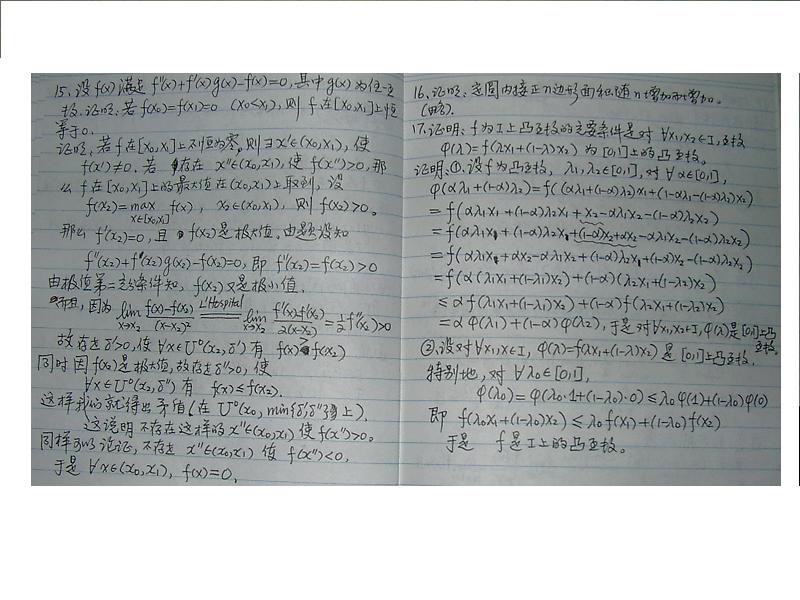 15、设f(x)满足 f″(x)+f′(x)g(x)−f(x)=0,其中g(x)为任一函
数.证明:若f(x₀)=f(x₁)=0 (x₀<x₁),则f在[x₀,x₁]上恒
等于0。
证明:若f在[x₀,x₁]上不恒为零,则∃x′∈(x₀,x₁),使
f(x′)≠0.若存在 x″∈(x₀,x₁),使f(x″)>0,那
么f在[x₀,x₁]上的最大值在(x₀,x₁)上取到,设
f(x₂)=max f(x), x₂∈(x₀,x₁),则f(x₂)>0。
x∈[x₀,x₁]
那么f′(x₂)=0,且f(x₂)是极大值.由题设知
f″(x₂)+f′(x₂)g(x₂)−f(x₂)=0,即f″(x₂)=f(x₂)>0
由极值第二充分条件知,f(x₂)又是极小值.
因为 lim x→x₂ f(x)−f(x₂)/(x−x₂)² L'Hospital = lim x→x₂ f′(x)−f′(x₂)/2(x−x₂) = ½f″(x₂)>0
故存在δ′>0,使∀x∈U°(x₂,δ′)有 f(x)>f(x₂)
同时因f(x₂)是极大值,故存在δ″>0,使
∀x∈U°(x₂,δ″)有 f(x)≤f(x₂).
这样我们就得出矛盾(在U°(x₂,min{δ′,δ″})上).
这说明不存在这样的x″∈(x₀,x₁)使f(x″)>0。
同样可以论证,不存在x″∈(x₀,x₁)使f(x″)<0,
于是∀x∈(x₀,x₁),f(x)=0.
16、证明:定圆内接正n边形面积随n增加而增加。
(略).
17、证明:f为I上凸函数的充要条件是对∀x₁,x₂∈I,函数
φ(λ)=f(λx₁+(1−λ)x₂)为[0,1]上的凸函数。
证明:①.设f为凸函数,λ₁,λ₂∈[0,1],对∀α∈[0,1],
φ(αλ₁+(1−α)λ₂)=f((αλ₁+(1−α)λ₂)x₁+(1−αλ₁−(1−α)λ₂)x₂)
=f(αλ₁x₁+(1−α)λ₂x₁+x₂−αλ₁x₂−(1−α)λ₂x₂)
=f(αλ₁x₁+(1−α)λ₂x₁+(1−α)x₂+αx₂−αλ₁x₂−(1−α)λ₂x₂)
=f(αλ₁x₁+αx₂−αλ₁x₂+(1−α)λ₂x₁+(1−α)x₂−(1−α)λ₂x₂)
=f(α(λ₁x₁+(1−λ₁)x₂)+(1−α)(λ₂x₁+(1−λ₂)x₂)
≤αf(λ₁x₁+(1−λ₁)x₂)+(1−α)f(λ₂x₁+(1−λ₂)x₂)
=αφ(λ₁)+(1−α)φ(λ₂),于是对∀x₁,x₂∈I,φ(λ)是[0,1]上凸
函数.
②设对∀x₁,x₂∈I,φ(λ)=f(λx₁+(1−λ)x₂)是[0,1]上凸函数,
特别地,对∀λ₀∈[0,1],
φ(λ₀)=φ(λ₀·1+(1−λ₀)·0)≤λ₀φ(1)+(1−λ₀)φ(0)
即 f(λ₀x₁+(1−λ₀)x₂)≤λ₀f(x₁)+(1−λ₀)f(x₂)
于是 f是I上的凸函数。